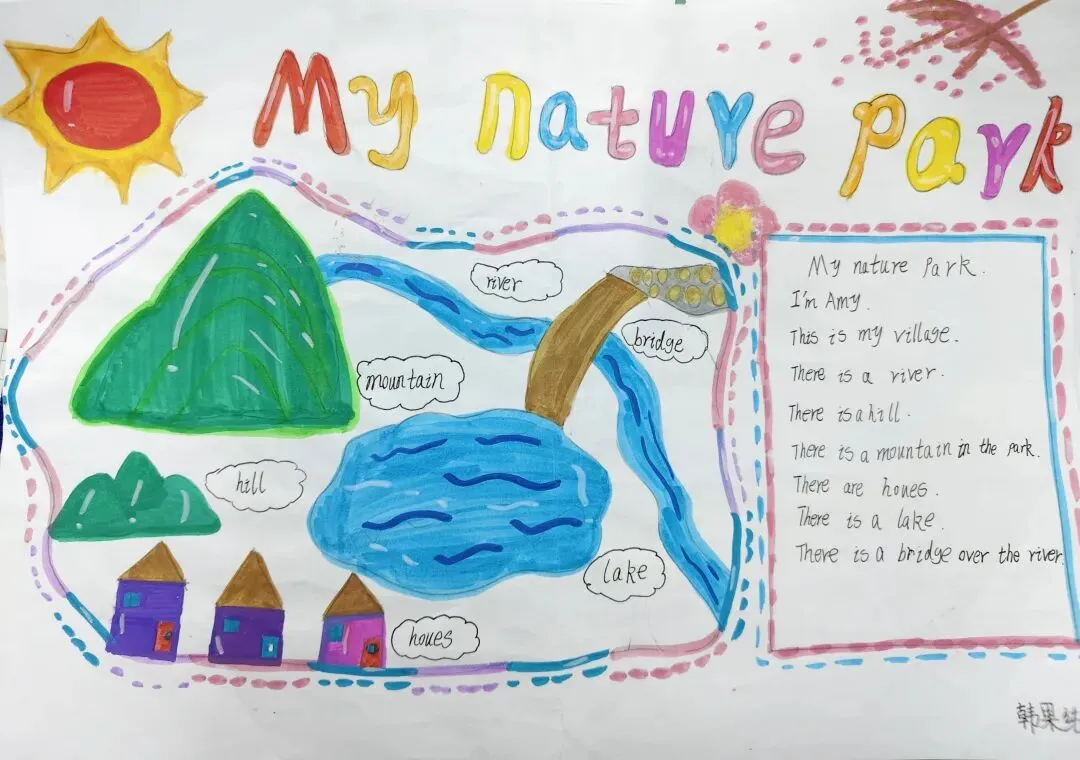 My nature park
river
bridge
mountain
hill
lake
houes
My nature Park.
I'm Amy.
This is my village.
There is a river.
There is a hill.
There is a mountain in the park.
There are houes.
There is a lake.
There is a bridge over the river
韩果